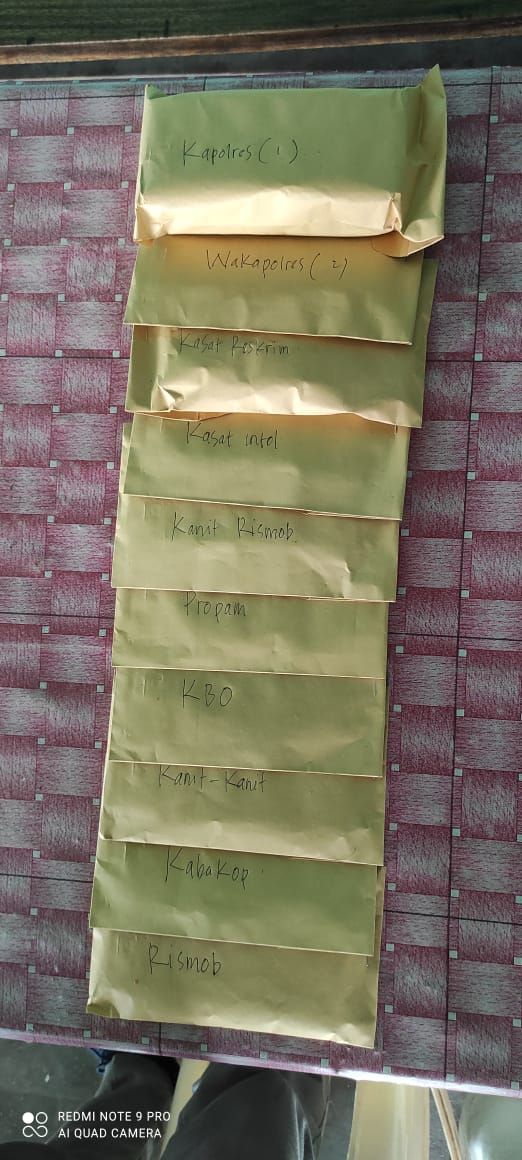 Kapolres (1)
Wakapolres (2)
Kasat Reskrim
Kasat intel
Kanit Rismob
Propam
KBO
Kanit-Kanit
Kabakop
Rismob
REDMI NOTE 9 PRO
AI QUAD CAMERA